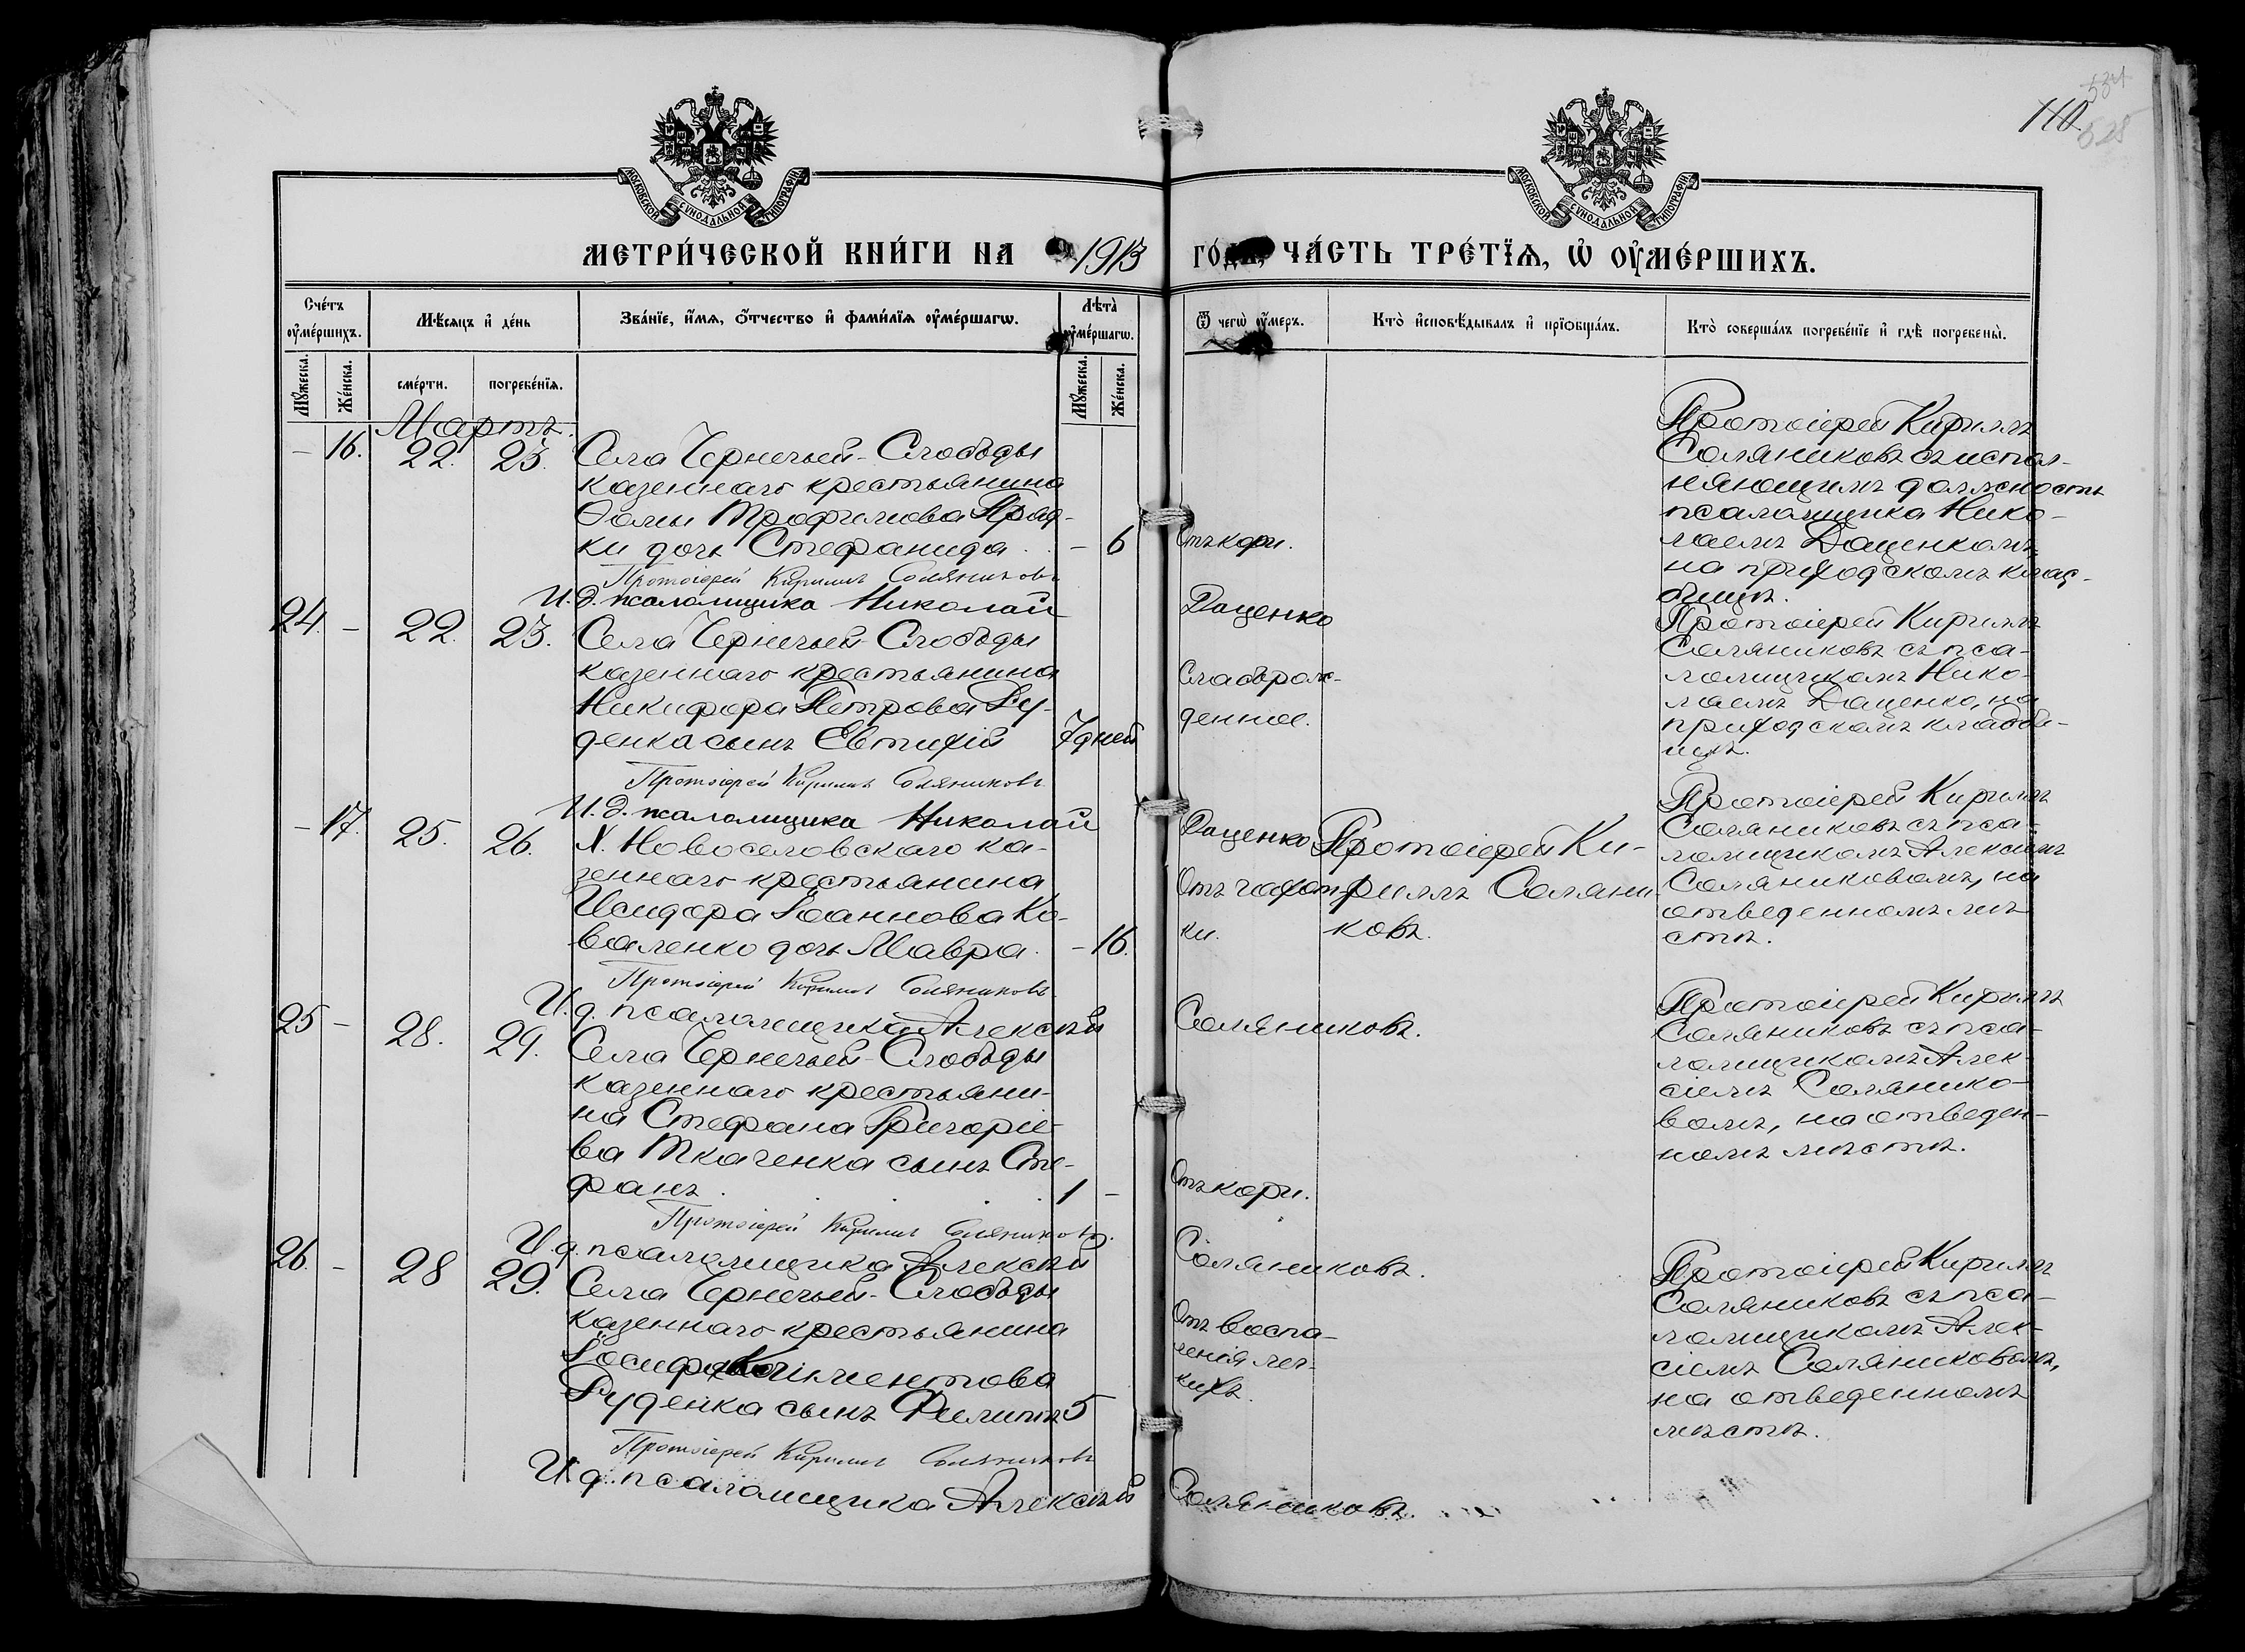 110.
534
528
МОСКОВСКОЙ СУНОДАЛЬНОЙ ТИПОГРАФІИ
МОСКОВСКОЙ СУНОДАЛЬНОЙ ТИПОГРАФІИ
МЕТРИ́ЧЕСКОЙ КНИ́ГИ НА 1913 ГО́ДЪ, ЧА́СТЬ ТРЕ́ТІѦ, Ѡ҆ ОУ҆МЕ́РШИХЪ.
Сче́тъ оу҆ме́ршихъ.
Мꙋ́жеска.
Же́нска.
Мѣ́сѧцъ и҆ де́нь
сме́рти.
погребе́нїѧ.
Зва́нїе, и҆́мѧ, ѻ҆́тчество и҆ фами́лїѧ оу҆ме́ршагѡ.
Лѣ̑та̀ оу҆ме́ршагѡ.
Мꙋ́жеска.
Же́нска.
Ѿ чегѡ̀ оу҆́меръ.
Кто̀ и҆сповѣ́дывалъ и҆ прїѻбща́лъ.
Кто̀ соверша́лъ погребе́нїе и҆ гдѣ̀ погребены̀.
Мартъ.
– 16. 22. 23. Села Чернечьей-Слободы
казеннаго крестьянина
Ѳомы Трофимова Прад-
ки дочь Стефанида. – 6
Отъ кори.
Протоіерей Кириллъ
Соляниковъ съ испол-
няющимъ должность
псаломщика Нико-
лаемъ Даценкомъ,
на приходскомъ клад-
бищѣ.
Протоіерей Кириллъ Соляниковъ
И. д. псаломщика Николай Даценко
24. – 22. 23. Села Чернечьей-Слободы
казеннаго крестьянина
Никифора Петрова Ру-
денка сынъ Евтихій 7 дней
Слаборож-
денное.
Протоіерей Кириллъ
Соляниковъ съ пса-
ломщикомъ Нико-
лаемъ Даценко, на
приходскомъ кладби-
щѣ.
Протоіерей Кириллъ Соляниковъ
И. д. псаломщика Николай Даценко
– 17. 25. 26. Х. Новоселовскаго ка-
зеннаго крестьянина
Исидора Іоаннова Ко-
валенко дочь Мавра. – 16.
Отъ чахот-
ки.
Протоіерей Ки-
риллъ Соляни-
ковъ.
Протоіерей Кириллъ
Соляниковъ съ пса-
ломщикомъ Алексіемъ
Соляниковомъ, на
отведенномъ мѣ-
стѣ.
Протоіерей Кириллъ Соляниковъ
И. д. псаломщика Алексѣй Соляниковъ.
25 – 28. 29. Села Чернечьей-Слободы
казеннаго крестьяни-
на Стефана Григоріе-
ва Ткаченка сынъ Сте-
фанъ. 1 –
Отъ кори.
Протоіерей Кириллъ
Соляниковъ съ пса-
ломщикомъ Алек-
сіемъ Солянико-
вомъ, на отведен-
номъ мѣстѣ.
Протоіерей Кириллъ Соляниковъ.
И. д. псаломщика Алексѣй Соляниковъ.
26. – 28 29. Села Чернечьей-Слободы
казеннаго крестьянина
Іосифа Климентова
Руденка сынъ Филиппъ 5
Отъ воспа-
ленія лег-
кихъ.
Протоіерей Кириллъ
Соляниковъ съ пса-
ломщикомъ Алек-
сіемъ Соляниковомъ,
на отведенномъ
мѣстѣ.
Протоіерей Кириллъ Соляниковъ
И. д. псаломщика Алексѣй Соляниковъ.